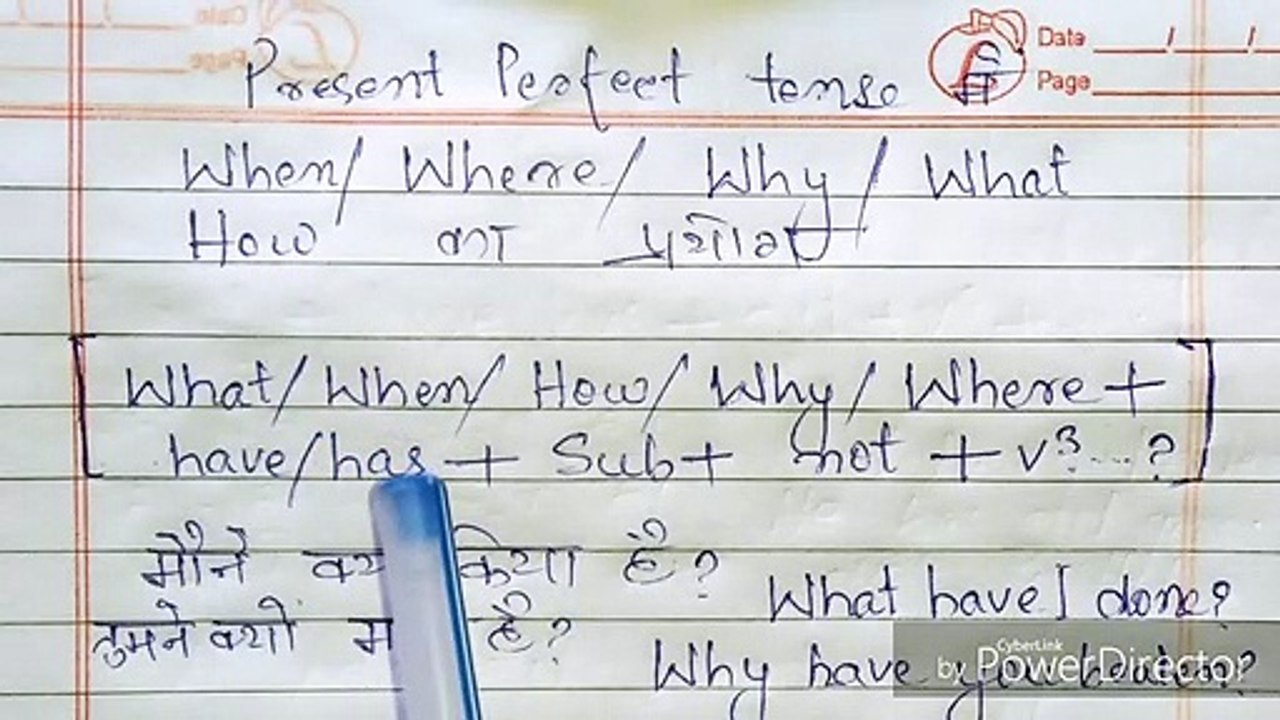 Date / /
Page
Present Perfect tense में
When/ Where/ Why/ What
How का प्रयोग
[What/ When/ How/ Why/ Where +
have/has + Sub + not + v³....?]
मैंने किया है?
What have I done?
तुमने क्यों है?
Why have you beaten?
CyberLink
by PowerDirector